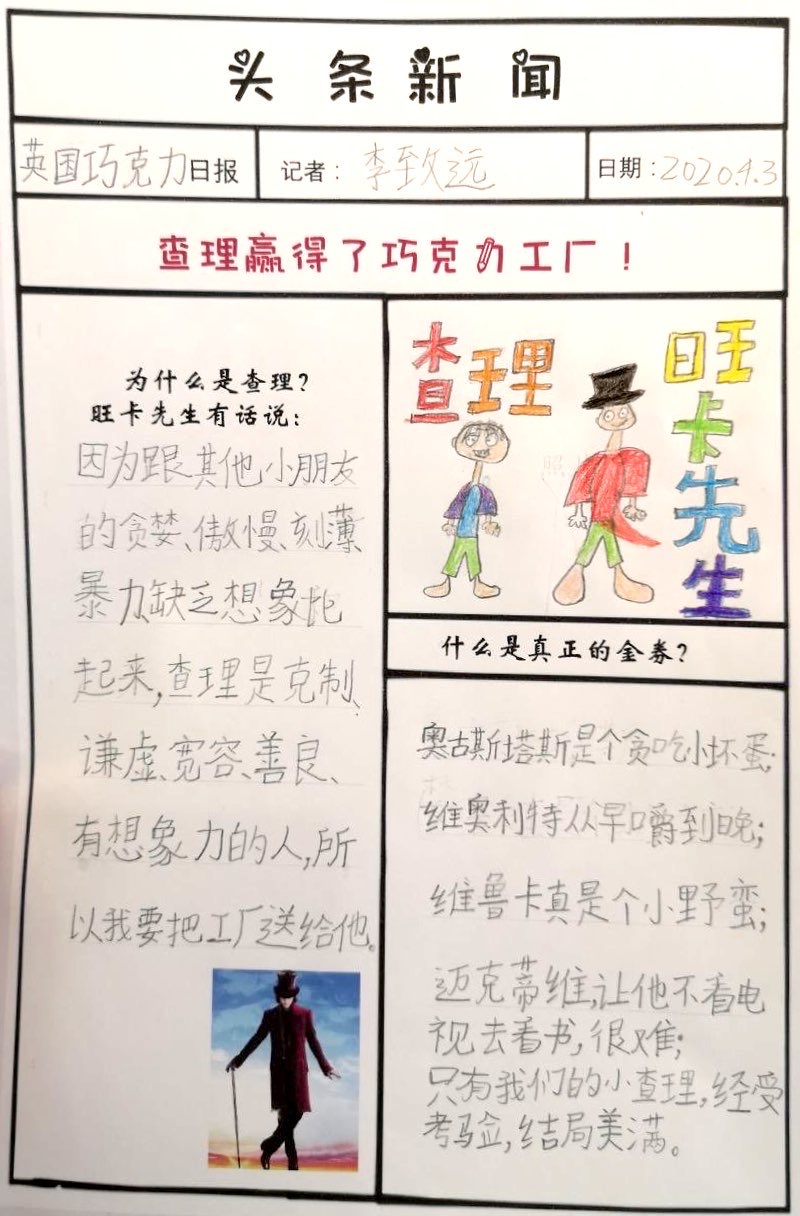 头条新闻
英国巧克力日报
记者：李致远
日期：2020.4.3
查理赢得了巧克力工厂！
为什么是查理？
旺卡先生有话说：
因为跟其他小朋友
的贪婪、傲慢、刻薄
暴力、缺乏想象比
起来,查理是克制、
谦虚、宽容、善良、
有想象力的人,所
以我要把工厂送给他。
查理
旺卡先生
什么是真正的金券？
奥古斯塔斯是个贪吃小坏蛋;
维奥利特从早嚼到晚;
维鲁卡真是个小野蛮;
迈克蒂维,让他不看电
视去看书,很难;
只有我们的小查理,经受
考验,结局美满。